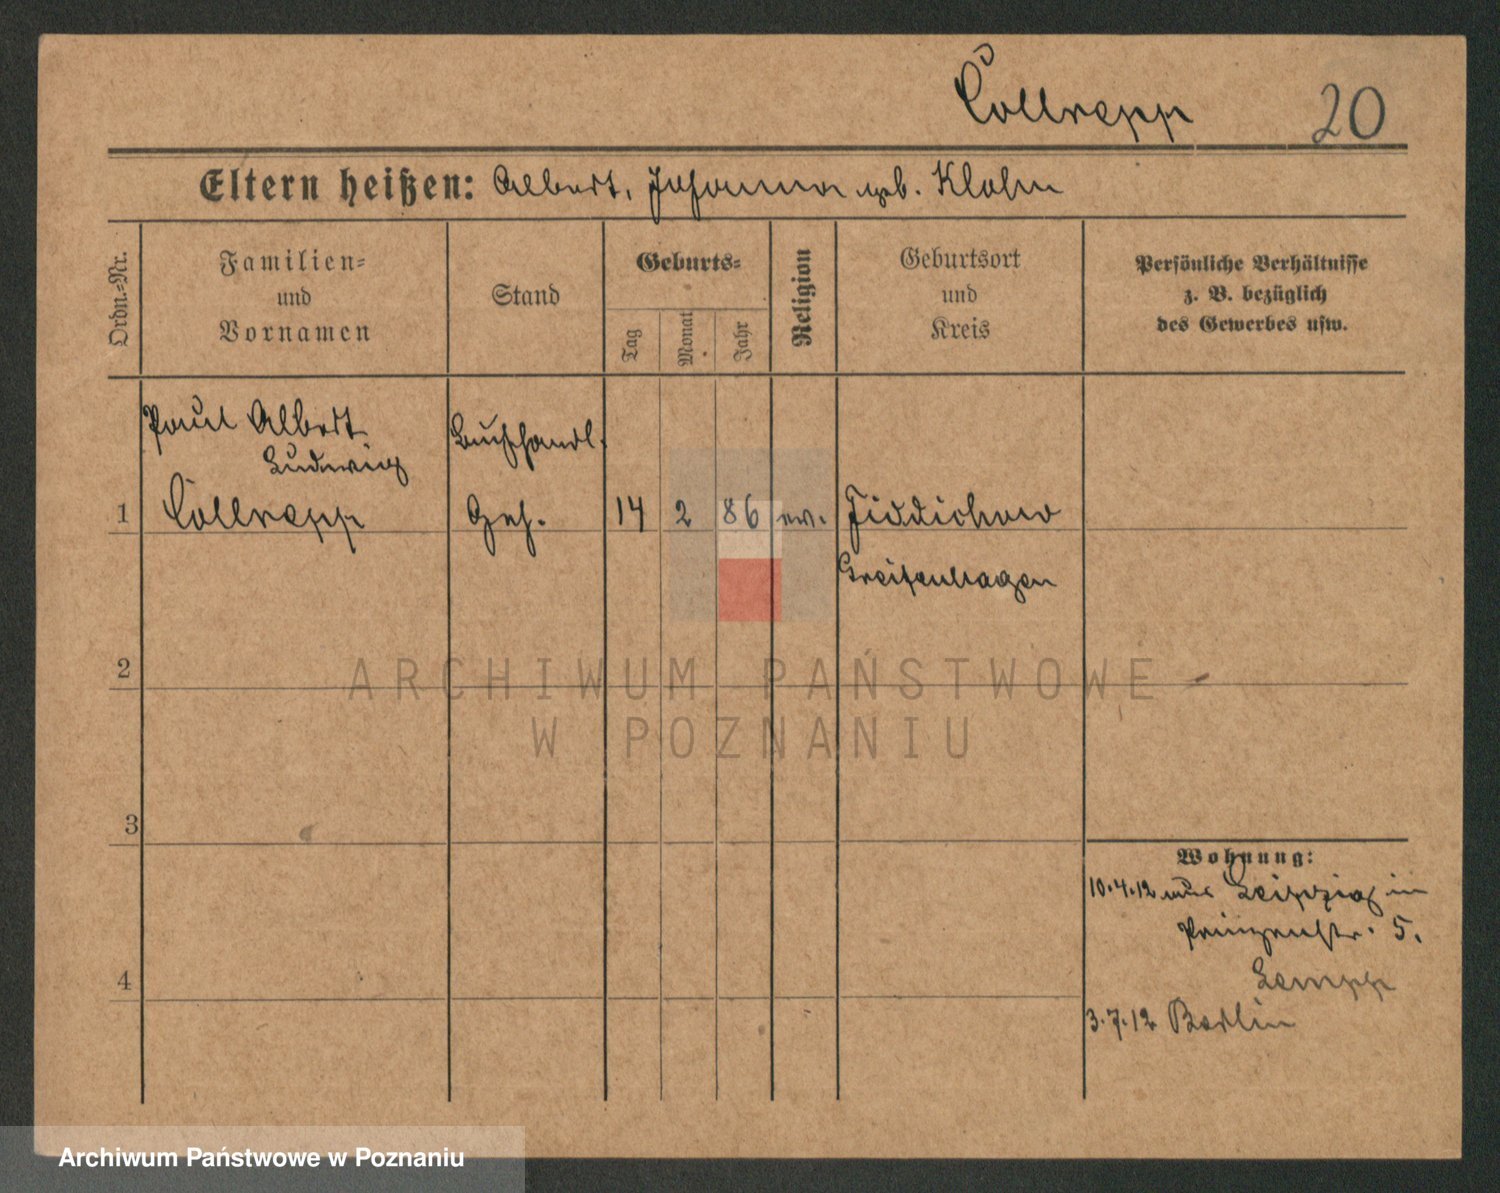 Collrepp 20
Eltern heißen: Albert, Johanna geb. Klohn
Ordn.=Nr.
Familien=
und
Vornamen
Stand
Geburts=
Tag
Monat
Jahr
Religion
Geburtsort
und
Kreis
Persönliche Verhältnisse
z. B. bezüglich
des Gewerbes usw.
Paul Albert
Ludwig
Buchhandl.
1 Collrepp Geh. 14 2 86 ev. Fiddichow
Greifenhagen
2
ARCHIWUM PAŃSTWOWE
W POZNANIU
3
Wohnung:
10.4.12 aus Leipzig in
Prinzenstr. 5.
4
3.7.12 Berlin
Archiwum Państwowe w Poznaniu